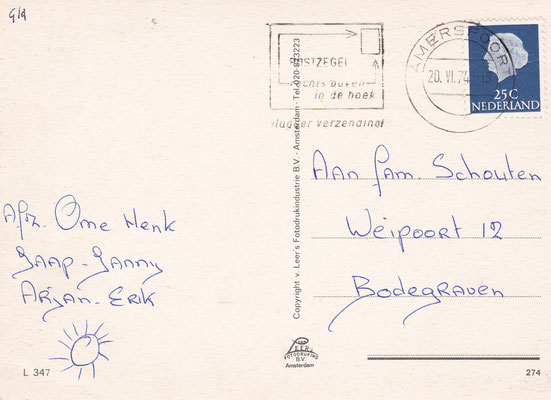 G/d
POSTZEGEL
rechts boven
in de hoek
vlugger verzending!
AMERSFOORT
20.VI.74
25C
NEDERLAND
Copyright v. Leer's Fotodrukindustrie B.V. - Amsterdam - Tel. 020-823223
Aan fam. Schouten
Weipoort 12
Bodegraven
Afz. Ome Henk
Jaap - Janny
Arjan - Erik
VAN LEER'S
FOTODRUKIND.
B.V.
Amsterdam
L 347
274